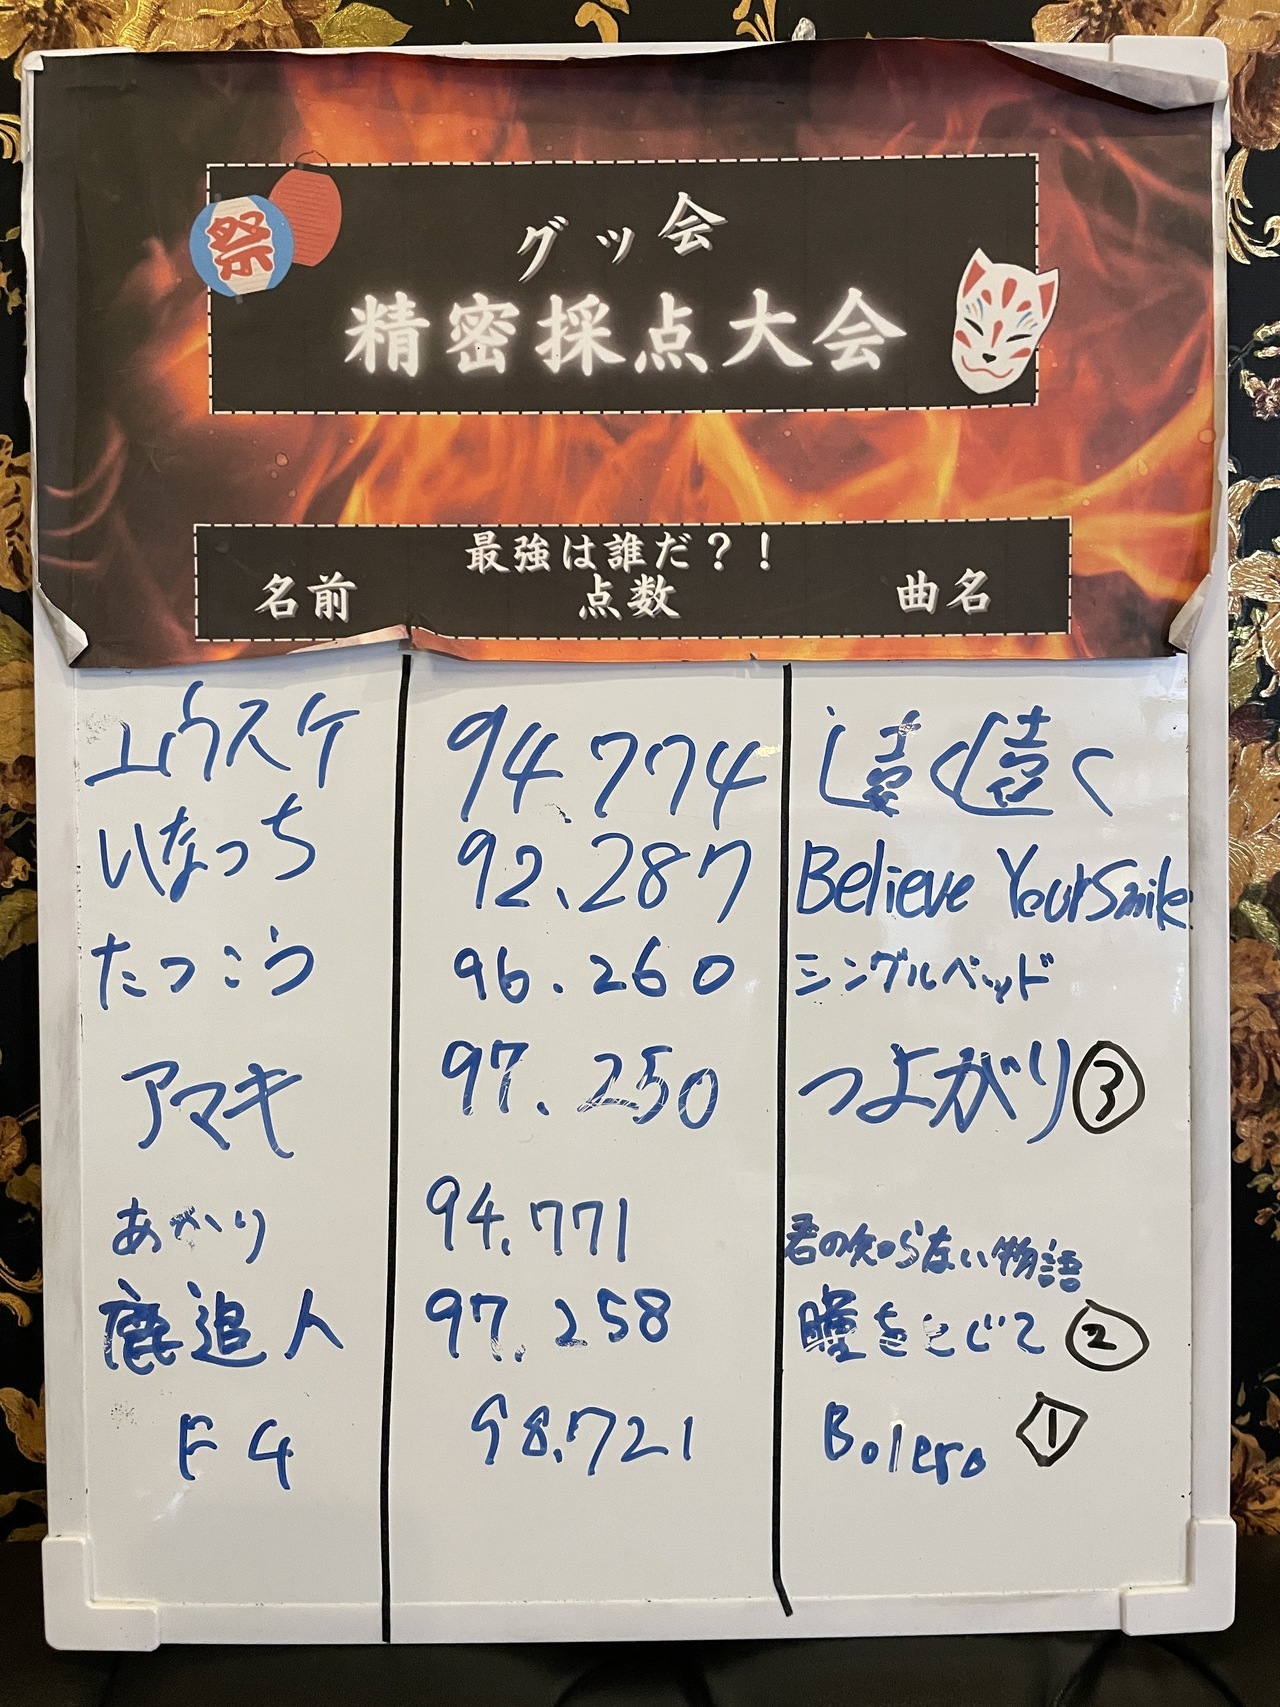 祭
グッ会
精密採点大会
最強は誰だ？！
名前 点数 曲名
ユウスケ 94.774 遠く遠く
いなっち 92.287 Believe Your Smile
たつこう 96.260 シングルベッド
アマキ 97.250 つよがり ③
あかり 94.771 君の知らない物語
鹿追人 97.258 瞳をとじて ②
F4 98.721 Bolero 1